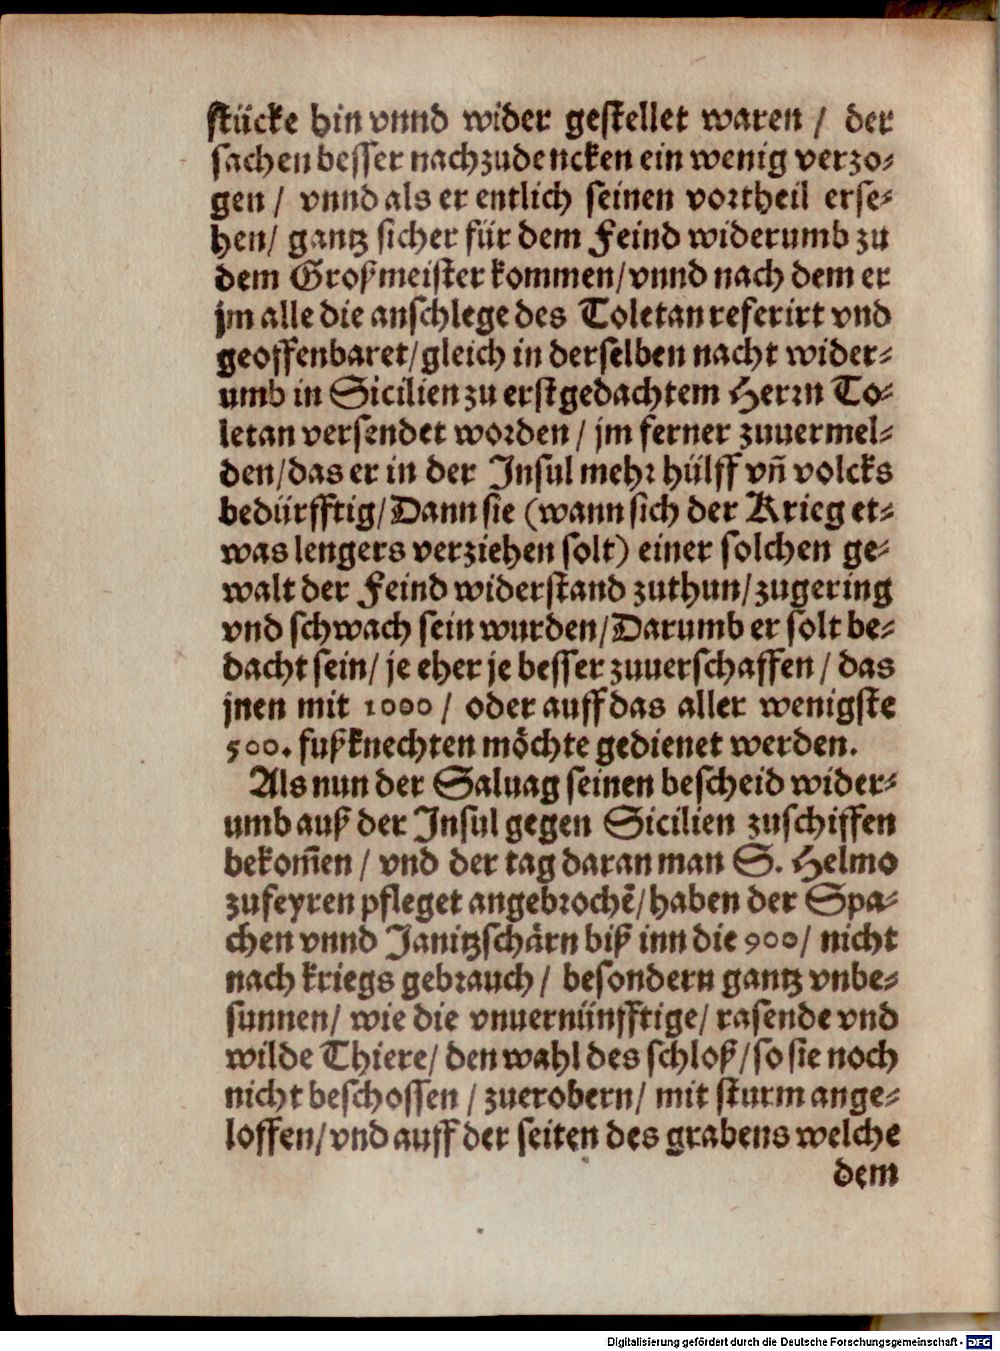 stücke hin vnnd wider gestellet waren / der
sachen besser nachzudencken ein wenig verzo-
gen / vnnd als er entlich seinen vortheil erse-
hen / gantz sicher für dem Feind widerumb zu
dem Großmeister kommen / vnnd nach dem er
jm alle die anschlege des Toletan referirt vnd
geoffenbaret / gleich in derselben nacht wider-
umb in Sicilien zu erstgedachtem Herrn To-
letan versendet worden / jm ferner zuuermel-
den / das er in der Insul mehr hülff vñ volcks
bedürfftig / Dann sie (wann sich der Krieg et-
was lengers verziehen solt) einer solchen ge-
walt der Feind widerstand zuthun / zugering
vnd schwach sein wurden / Darumb er solt be-
dacht sein / je eher je besser zuuerschaffen / das
jnen mit 1000 / oder auff das aller wenigste
500. fußknechten möchte gedienet werden.
Als nun der Saluag seinen bescheid wider-
umb auß der Insul gegen Sicilien zuschiffen
bekom̃en / vnd der tag daran man S. Helmo
zufeyren pfleget angebrochẽ / haben der Spa-
chen vnnd Janitzschärn biß inn die 900 / nicht
nach kriegs gebrauch / besondern gantz vnbe-
sunnen / wie die vnuernünfftige / rasende vnd
wilde Thiere / den wahl des schloß / so sie noch
nicht beschossen / zuerobern / mit sturm ange-
loffen / vnd auff der seiten des grabens welche
dem
Digitalisierung gefördert durch die Deutsche Forschungsgemeinschaft - DFG